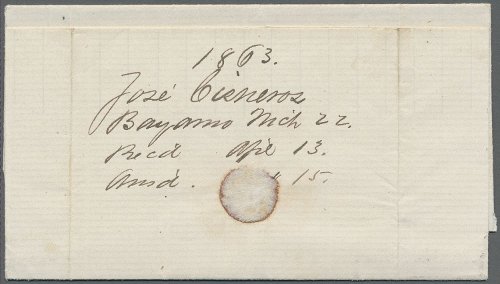 1863.
José Cisneros
Bayamo Mch 22.
Recd Apl 13.
Ansd. 15.